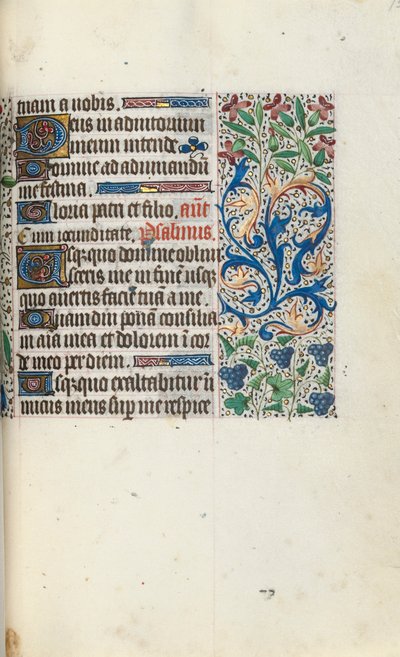 tuam a nobis.
Deus in adiutoriu
meum intende
Domine ad adiuuandu
me festina.
Gloria patri et filio. ant
Cum iocunditate. Psalmus
Usqzquo domine obliui
sceris me in finē usqz
quo auertis faciē tuā a me
Quamdiu ponā consilia
in aīa mea et dolorem ī cor
de meo per diem.
Usqzquo exaltabitur ī
imicus meus sup me respice